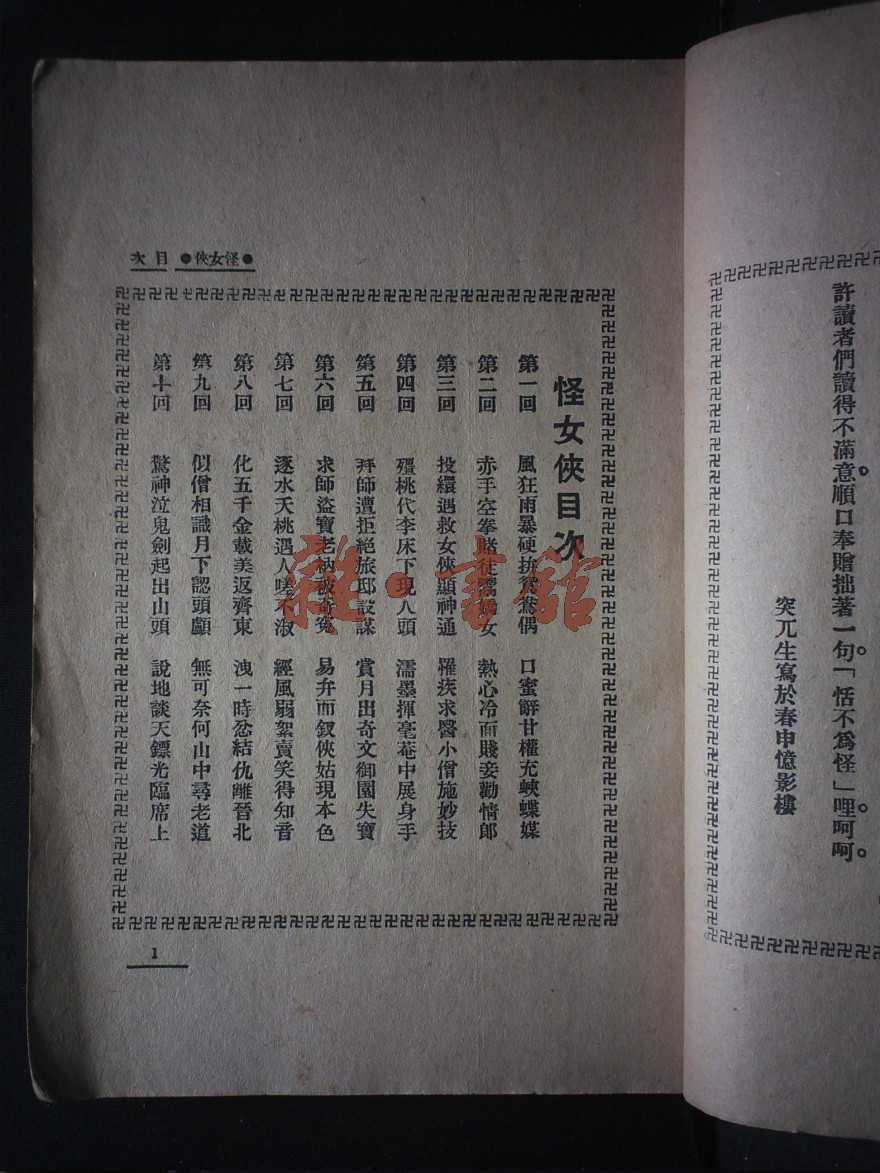 許讀者們讀得不滿意。順口奉贈拙著一句。「恬不爲怪」哩。呵呵。
突兀生寫於春申憶影樓
●怪女俠● 目次
怪女俠目次
第一回 風狂雨暴硬拆鴛鴦偶 口蜜辭甘權充蛺蝶媒
第二回 赤手空拳賭徒鬻婦女 熱心冷面賤妾勸情郎
第三回 投繯遇救女俠顯神通 罹疾求醫小僧施妙技
第四回 殭桃代李床下現人頭 濡墨揮毫菴中展身手
第五回 拜師遭拒絕旅邸設謀 賞月出奇文御園失寶
第六回 求師盜寶老衲被奇冤 易弁而釵俠姑現本色
第七回 逐水夭桃遇人嗟不淑 經風弱絮賣笑得知音
第八回 化五千金載美返齊東 洩一時忿結仇離晉北
第九回 似僧相識月下認頭顱 無可奈何山中尋老道
第十回 驚神泣鬼劍起出山頭 說地談天鏢光臨席上
1
雜·書館